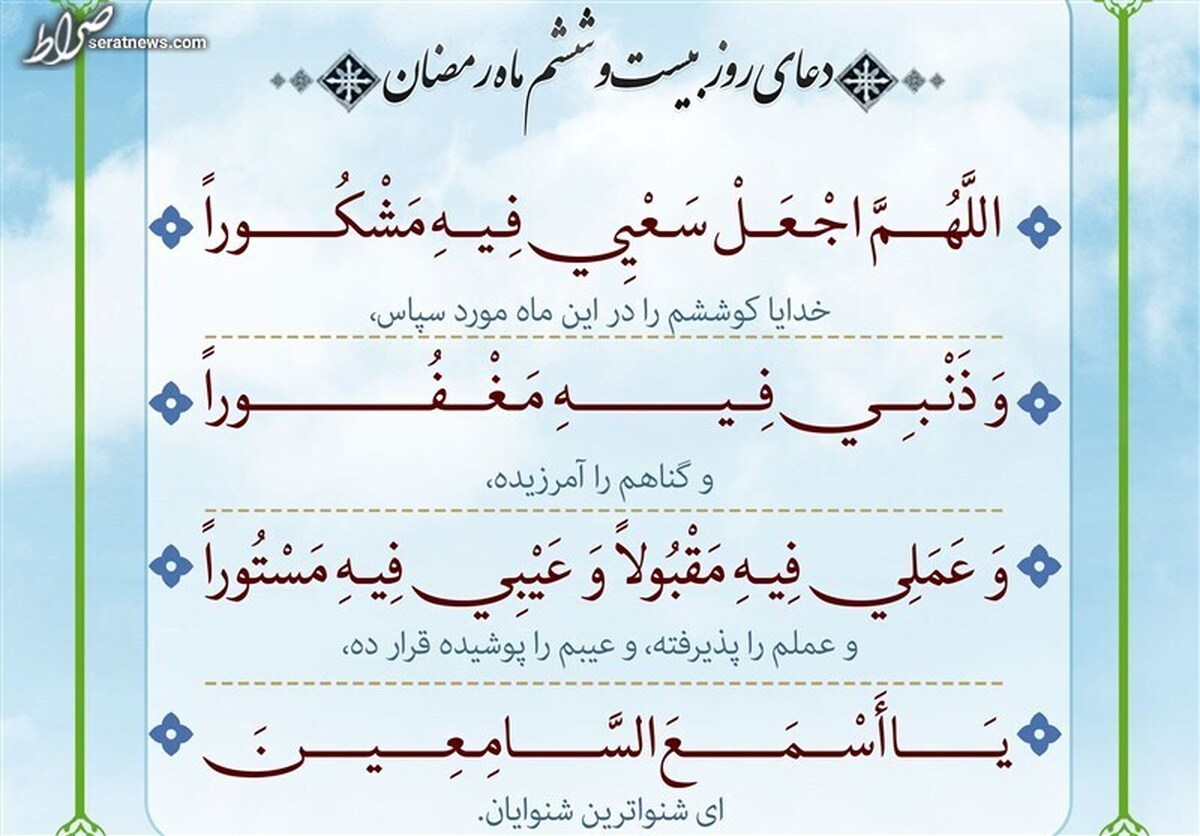 صراط
seratnews.com
دعای روز بیست و ششم ماه رمضان
اللَّهُمَّ اجْعَلْ سَعْيِي فِيهِ مَشْكُوراً
خدایا کوششم را در این ماه مورد سپاس،
وَ ذَنْبِي فِيهِ مَغْفُوراً
و گناهم را آمرزیده،
وَ عَمَلِي فِيهِ مَقْبُولاً وَ عَيْبِي فِيهِ مَسْتُوراً
و عملم را پذیرفته، و عیبم را پوشیده قرار ده،
يَا أَسْمَعَ السَّامِعِينَ
ای شنواترین شنوایان.